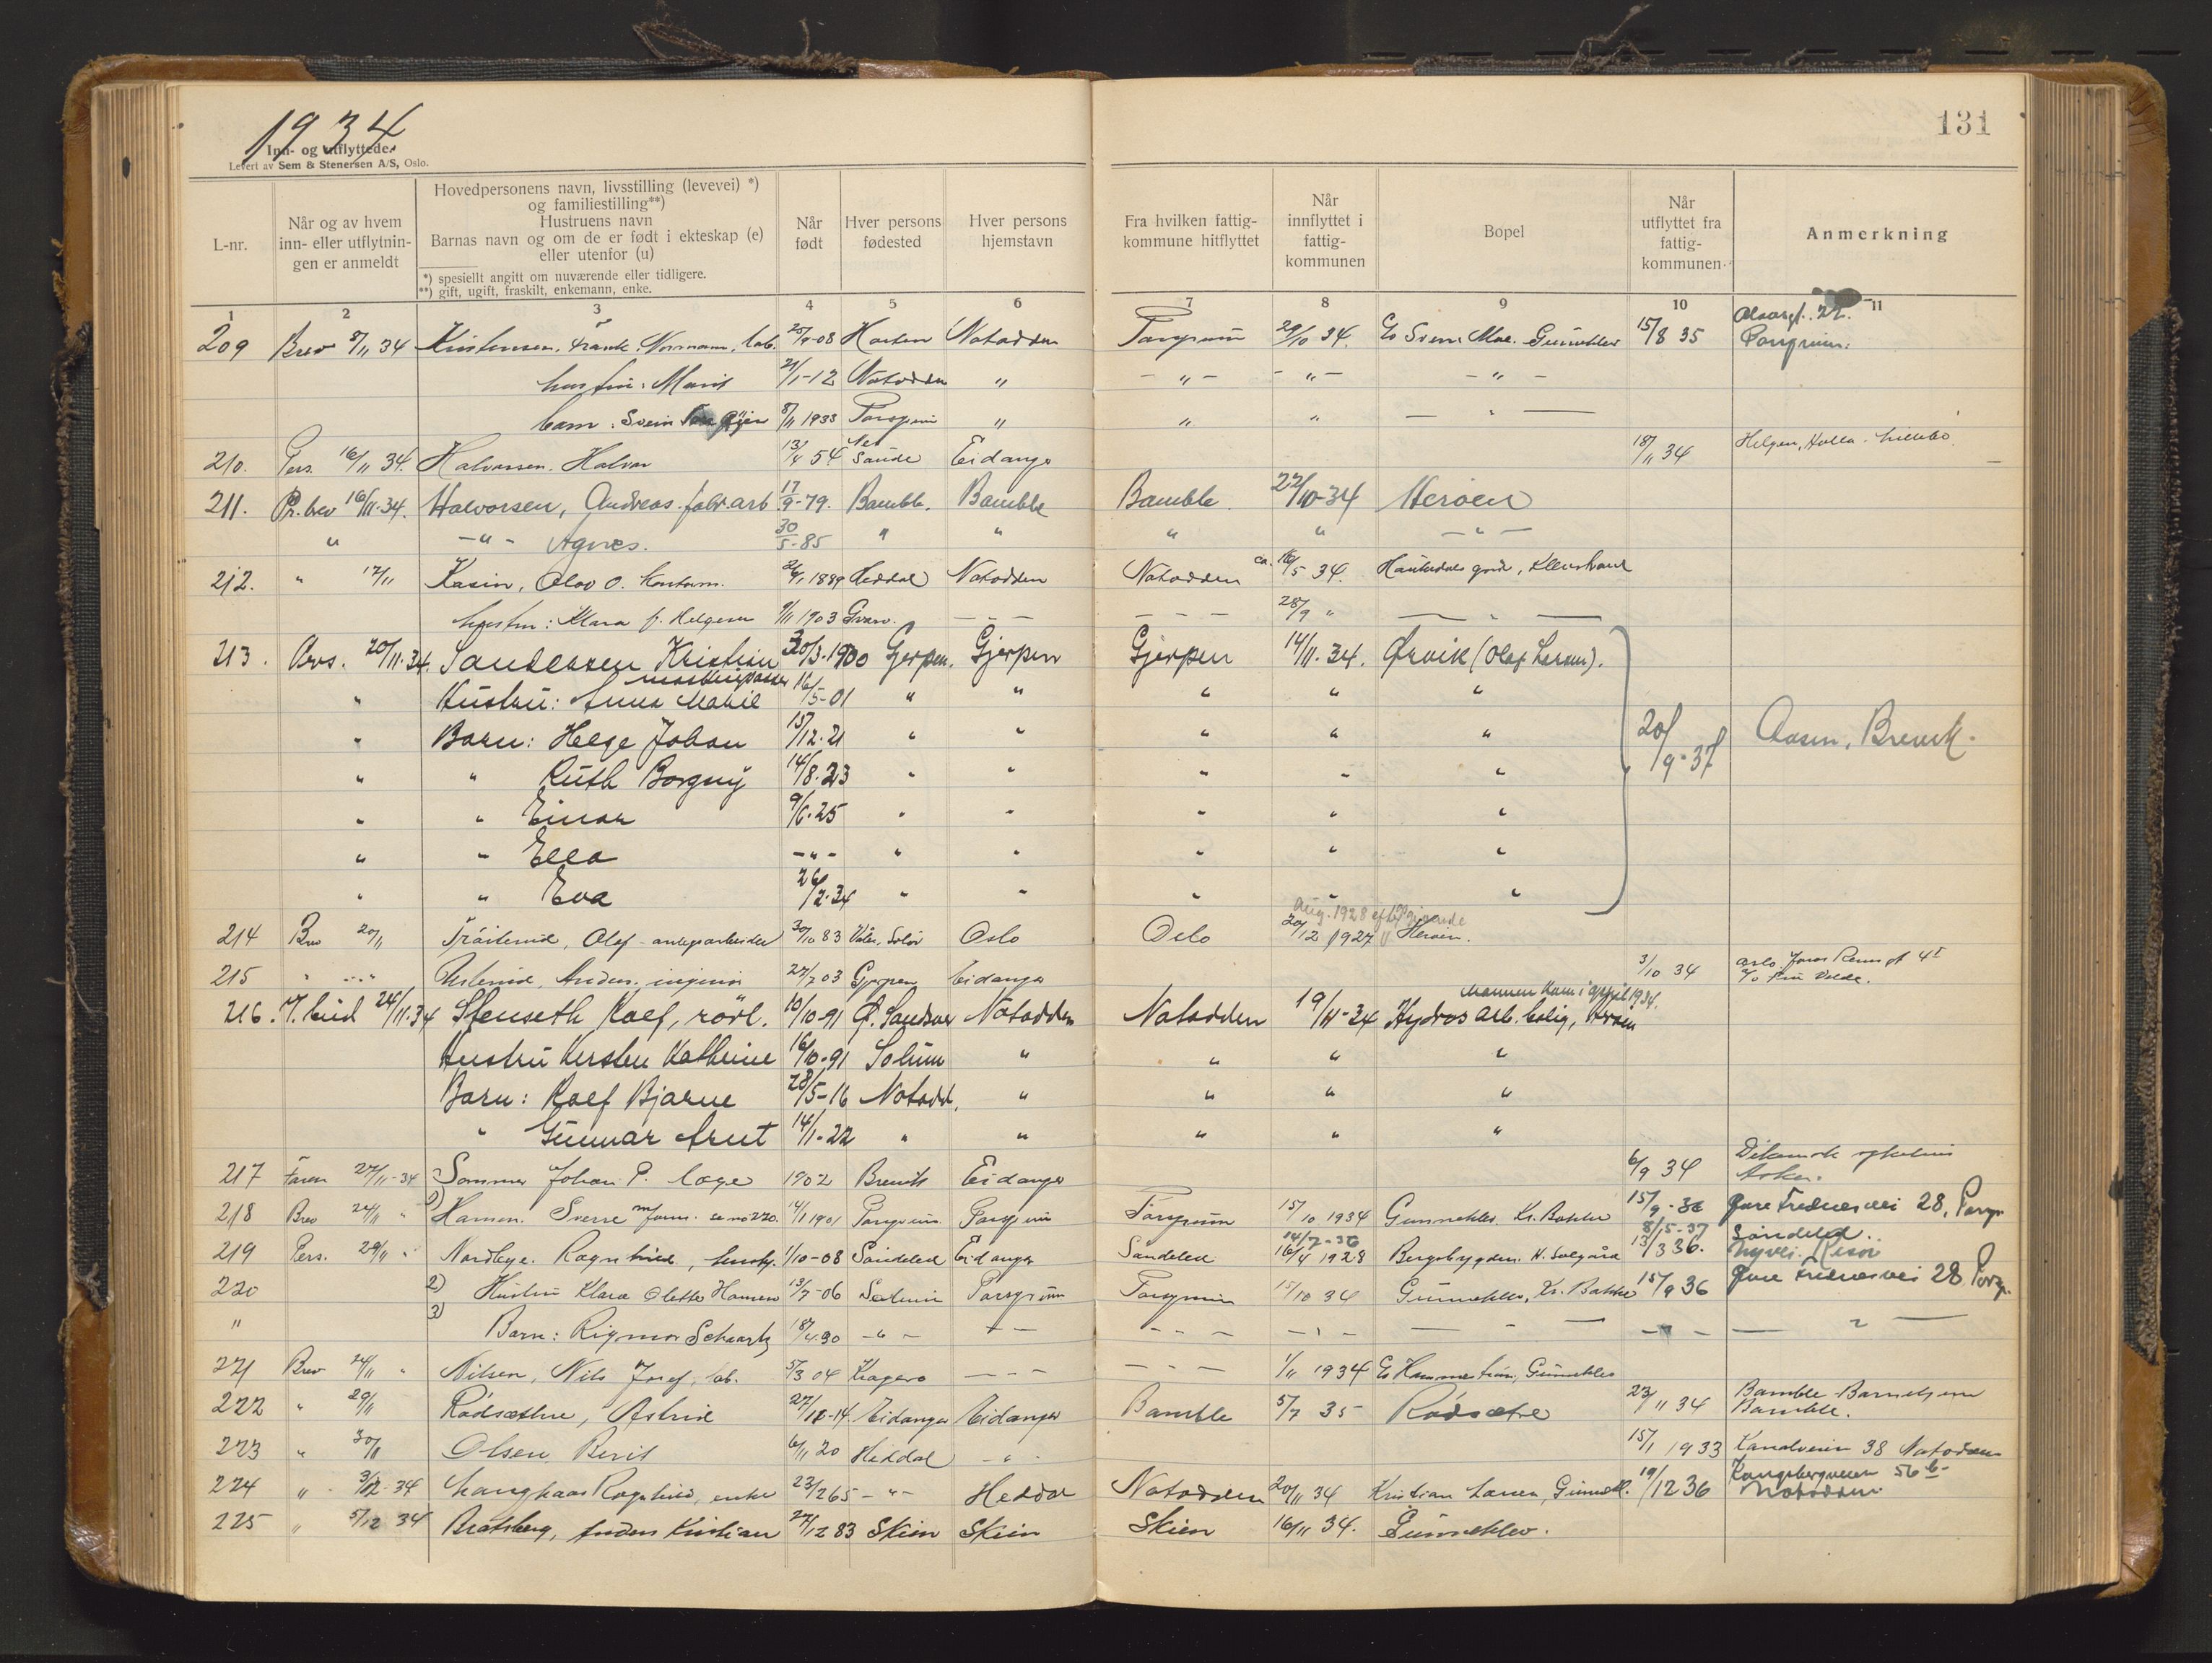 1934
131
Inn- og utflyttede.
Levert av Sem & Stenersen A/S, Oslo.
L-nr.
Når og av hvem inn- eller utflytnin-gen er anmeldt
Hovedpersonens navn, livsstilling (levevei) *) og familiestilling**) Hustruens navn Barnas navn og om de er født i ekteskap (e) eller utenfor (u)
*) spesiellt angitt om nuværende eller tidligere.
**) gift, ugift, fraskilt, enkemann, enke.
Når født
Hver persons fødested
Hver persons hjemstavn
Fra hvilken fattig-kommune hitflyttet
Når innflyttet i fattig-kommunen
Bopel
Når utflyttet fra fattig-kommunen
Anmerkning
1 2 3 4 5 6 7 8 9 10 11
209 Brev 8/11 34 Kristensen, Frank Normann, lab. 25/9-08 Horten Notodden Porsgrunn 29/10 34. Gunneklev 15/8 35 Porsgrunn.
hustru: Marit 21/1-12 Notodden " - " - - " - - " -
barn: Svein 8/11 1933 Porsgrunn " " " "
210. Pers. 16/11 34. Halvorsen, Halvor 13/4 54 Sande Eidanger 18/11 34 Helgen, Holla.
211. Pr. brev 16/11-34. Halvorsen, Andreas. fabr.arb 17/9-79. Bamble. Bamble Bamble. 22/10-34 Herøen
" - " - Agnes. 30/5-85 " " " " - " -
212. " 17/11 Kasin, Olav O. kontorm. 26/1 1889 Heddal Notodden Notodden ca. 16/5 34.
hustru: Klara f. Helgesen 9/11 1903 Gvarv. 28/9 "
213. Pers. 20/11-34. Sandersen Kristian 30/3-1900 Gjerpen. Gjerpen Gjerpen 14/11-34. Ørvik (Olaf Larsen).
maskinpasser
" Hustru: Anna Mabil 16/5-01 " " " " "
" Barn: Helge Johan 15/12-21 " " " " " 20/9-37 Aasen, Brevik.
" " Ruth Borgny 14/8-23 " " " " "
" " Einar 9/6-25 " " " " "
" " Ella - " - " " " " "
" " Eva 26/2-34 " " " " "
Aug. 1928 efter
214 Brev 20/11 Olaf - anlegsarbeider 30/10 83 Våler, Solør Oslo Oslo 20/12 1927 Herøen.
215 " Anders, ingeniør 27/7 03 Gjerpen Eidanger 3/10 34 Oslo
mannen kom i april 1934.
216. 24/11-34 Stenseth Rolf, rørl. 10/10-91 Ø. Sandsvær Notodden Notodden 19/11-34 Hydros arb. bolig, Herøen
Hustru Kersten Kathrine 16/10-91 Solum " " " "
Barn: Rolf Bjarne 28/5-16 Notodd. " " " "
" Gunnar Arnt 14/1-22 " " " " "
217 27/11-34 Sommer Johan P. læge 1902 Brevik Eidanger 6/9 34 Dikemark sykehus Asker.
218 Brev 24/11 " 1) Hansen, Sverre se no 220. 14/1 1901 Porsgrunn Porsgrunn Porsgrunn 15/10 1934 Gunneklev. Kr. Bakke 15/9-36 Øvre Frednesvei 28, Porsgr
14/7-36 8/5-37 Søndeled.
219 Pers. 29/11 " Nordbye, Ragnhild, 1/10-08 Søndeled Eidanger Søndeled 16/4 1928 Bergsbygden. N. Salgård 13/3 36. Nyvei. Risør
220 2) Hustru Klara Olette Hansen 13/7-06 Solum Porsgrunn Porsgrunn 15/10 34 Gunneklev, Kr. Bakke 15/9 36 Øvre Frednesvei 28 Porsg.
" 3) Barn: Rigmor Schwartz 18/4-30 - " -
221 Brev 24/11 " Nilsen, Nils Josef, lab. 5/3 04 Kragerø 1/11 1934 Gunneklev
222 " 29/11 Rødsæthre, Astrid 27/12-14 Eidanger Eidanger Bamble 5/7 35 Rødsætre 23/11 34 Bamble Barnehjem Bamble.
223 " 30/11 Olsen, Berit 6/11 20 Heddal - " - 15/1 1933 Kanalveien 38 Notodden
224 " 3/12-34 Langhaas Ragnhild, enke 23/2 65 - " - Heddal Notodden 20/11 34 Kristian Larsen, Gunnekl. 19/12 36 Kongsbergveien 56 b. Notodden.
225 " 5/12 34 Bratsberg, Anders Kristian 27/12 83 Skien Skien Skien 16/11 34. Gunneklev.